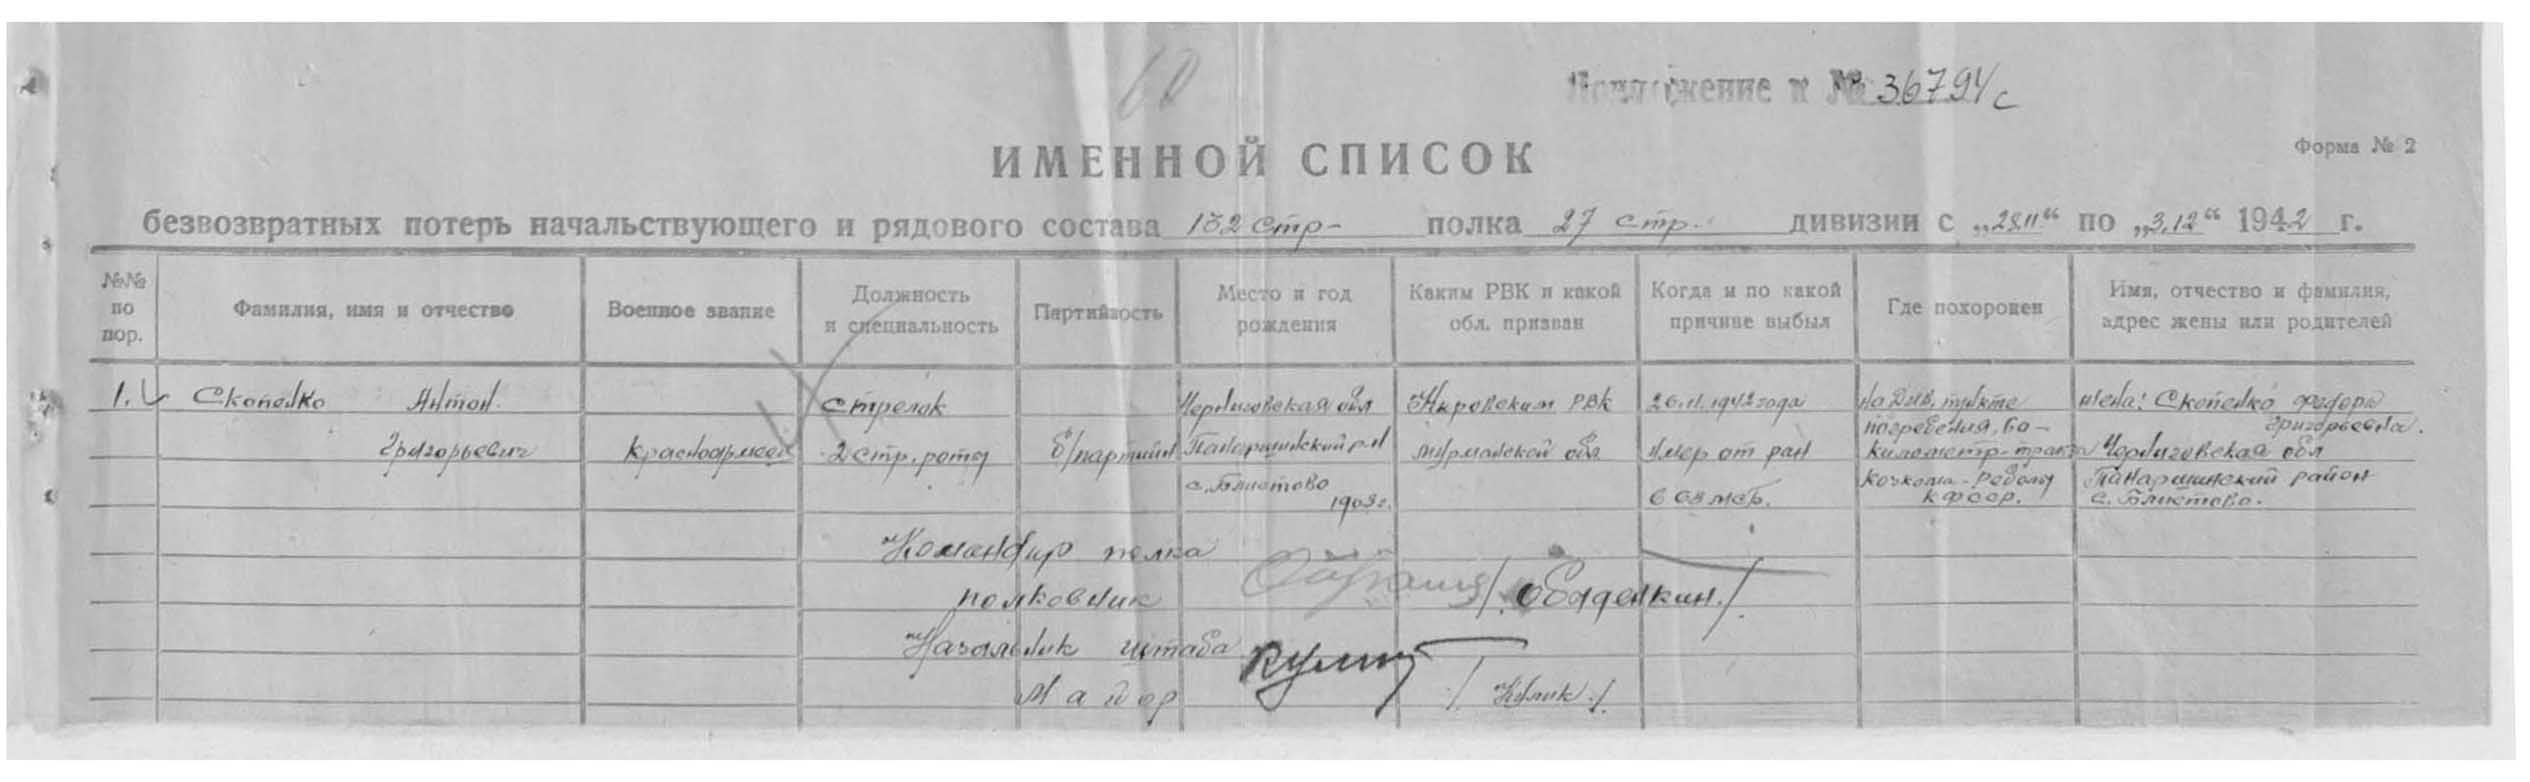 60
Приложение к № 36794с
Форма № 2
ИМЕННОЙ СПИСОК
безвозвратных потерь начальствующего и рядового состава 132 стр- полка 27 стр. дивизии с „28.11“ по „3.12“ 1942 г.
№№ по пор.
Фамилия, имя и отчество
Военное звание
Должность и специальность
Партийность
Место и год рождения
Каким РВК и какой обл. призван
Когда и по какой причине выбыл
Где похоронен
Имя, отчество и фамилия, адрес жены или родителей
1. Скопенко Антон Григорьевич
Красноармеец
Стрелок
2 стр. роты
б/партийн
Черниговская обл
Понорницкий р-н
с. Блистово
1908г.
Кировским РВК
Мурманской обл.
26.11.1942 года
умер от ран
в 68 мсб.
на Див. пункте
погребения, 60-
километр-тракта
Кочкома-Реболы
КФССР.
жена: Скопенко
Григорьевна.
Черниговская обл
Понорницкий район
с. Блистово.
Командир полка
полковник /Ободенкин./
Начальник штаба
Майор /Кулик./